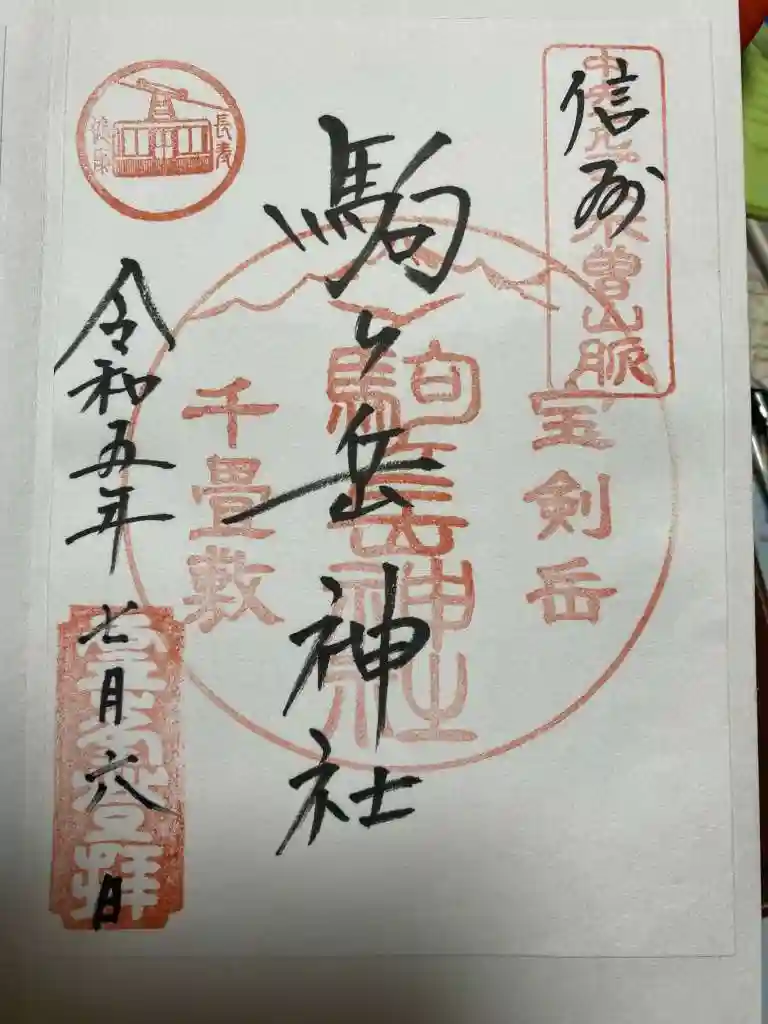 信州
中央アルプス木曽山脈
駒ヶ岳神社
宝剣岳
駒岳神社
千畳敷
長寿
健康
令和五年七月六日
登拝